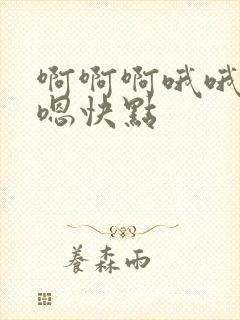 啊啊啊哦哦
嗯快點
養森雨